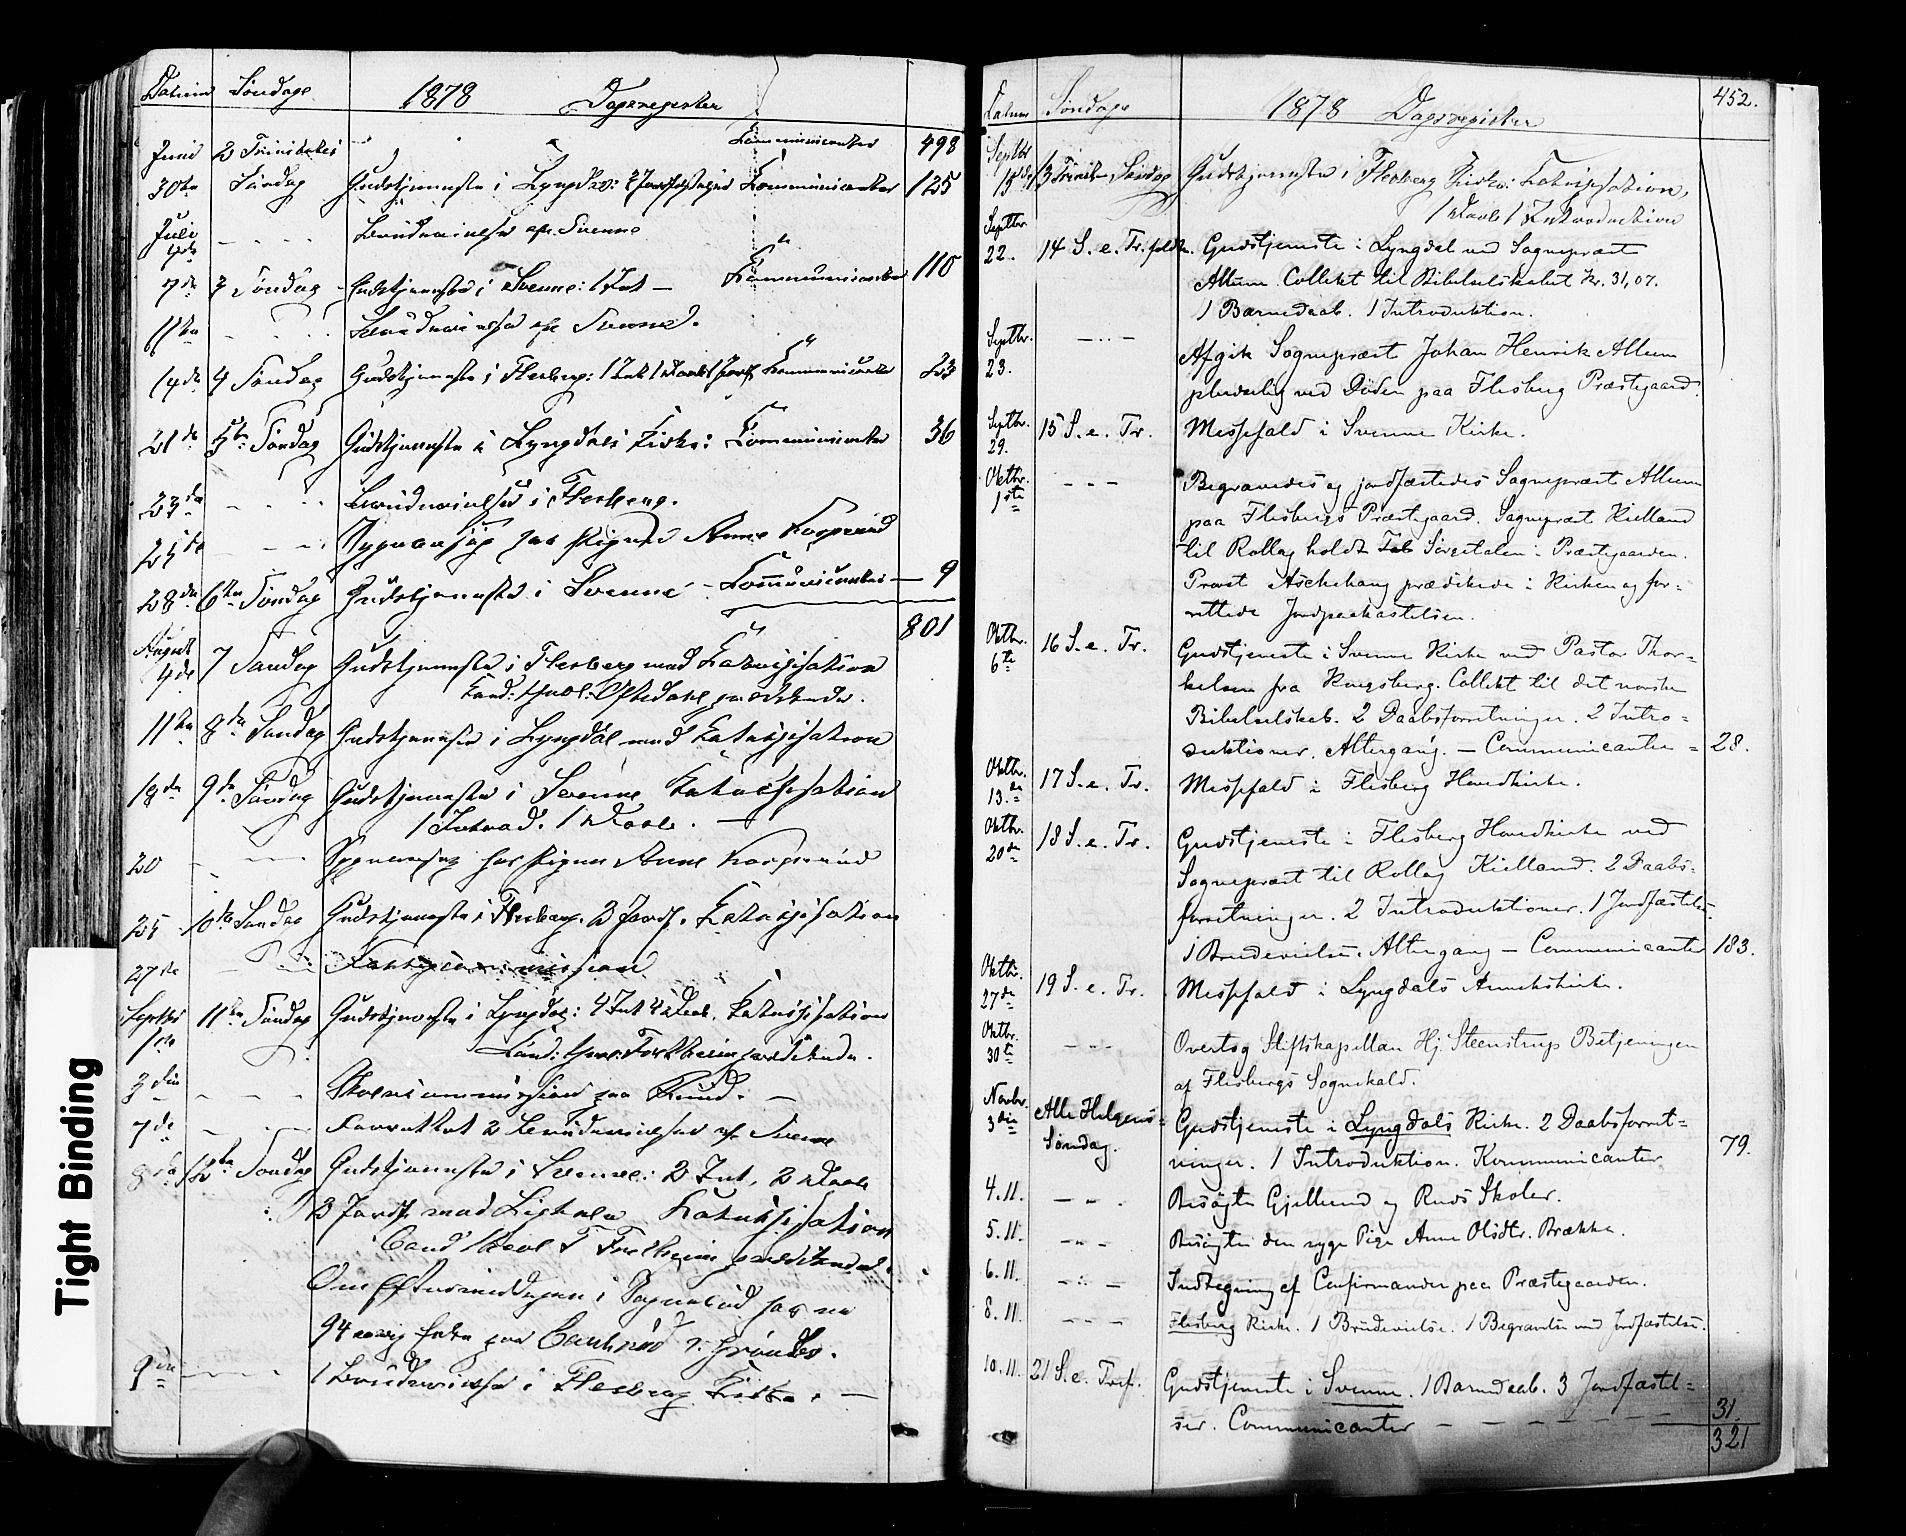 Datum Søndage 1878 Dagsregister
Communicanter 498
Juni 2 Trinitatis
30te Søndag Gudstjeneste i Lyngdal: 2 Communicanter 125
Juli
4de Brudevielse i Svenne
7de 3 Søndag Gudstjeneste i Svenne: 1 Int — Kommunicanter 110
11te Brudevielse i Svenne.
14de 4 Søndag Gudstjeneste i Flesberg: 1 Int 1 Daab 1 Jordf. Kommunicanter 23
21de 5te Søndag Gudstjeneste i Lyngdals Kirke: Communicanter 36
23de Brudevielse i Flesberg.
25de Sygebesøg hos Pigen Anne
28de 6te Søndag Gudstjeneste i Svenne — Communicanter — 9
801
August
4de 7 Søndag Gudstjeneste i Flesberg med Katekisation
Cand: theol: Oftedahl prædikede.
11te 8de Søndag Gudstjeneste i Lyngdal med Katekisation
18de 9de Søndag Gudstjeneste i Svenne Katekisation
1 Introd. 1 Daab. —
20 Sygebesøg hos Pigen Anne
25 10de Søndag Gudstjeneste i Flesberg. 3 Jordf. Katekisation
27de
Septbr
1ste 11te Søndag Gudstjeneste i Lyngdal: 4 Int 4 Daab. Katekisation
Cand: theol: prædikede.
3die Skolecommission paa Ruud. —
7de Forrettet 2 Brudevielser i Svenne
8de 12te Søndag Gudstjeneste i Svenne: 2 Int, 2 Daab
3 Jordf. med Ligtale Katekisation
Cand theol T prædikede.
Om Eftermiddagen i hos en
94 aarig Enke paa
9de 1 Brudevielse i Flesberg Kirke. —
Tight Binding
452.
Datum Søndage 1878 Dagsregister
Septbr
15de 13 Trinit. Søndag Gudstjeneste i Flesberg Kirke: Katekisation,
1 Daab 1 Introduction
Septbr.
22. 14 S. e. Tr. Gudstjeneste i Lyngdal ved Sognepræst
Allum Collekt til Bibelselskabet Kr. 31,07.
1 Barnedaab. 1 Introduktion.
Septbr.
23. — .. — Afgik Sognepræst Johan Henrik Allum
pludselig ved Døden paa Flesberg Præstegaard.
Septbr.
29. 15 S. e. Tr. Messefald i Svenne Kirke.
Oktbr.
1ste — - — Begravedes og jordfæstedes Sognepræst Allum
paa Flesbergs Præstegaard. Sognepræst Kielland
til Rollag holdt Sørgetalen i Præstegaarden.
Provst Aschehoug prædikede i Kirken og for-
rettede Jordpaakastelsen.
Oktbr.
6te 16 S. e. Tr. Gudstjeneste i Svenne Kirke ved Pastor Thor-
kelsen fra Kongsberg. Collekt til det norske
Bibelselskab. 2 Daabsforretninger. 2 Intro-
duktioner. Altergang. — Communicanter = 28.
Oktbr.
13de 17 S. e. Tr. Messefald i Flesberg Hovedkirke.
Oktbr.
20de 18 S. e. Tr. Gudstjeneste i Flesberg Hovedkirke ved
Sognepræst til Rollag Kielland. 2 Daabs-
forretninger. 2 Introduktioner. 1 Jordfæstelse.
1 Brudevielse. Altergang — Communicanter 183.
Oktbr.
27de 19 S. e. Tr. Messefald i Lyngdals Annekskirke.
Oktbr.
30te — - — Overtog Stiftskapellan Hj. Steenstrup Betjeningen
af Flesbergs Sognekald.
Novbr.
3die Alle Helgens- Gudstjeneste i Lyngdals Kirke. 2 Daabsforret-
Søndag. ninger. 1 Introduktion. Kommunicanter 79.
4.11. — - . Besøgte Gjellerud og Ruds Skoler.
5.11. — .. — Besøgte den syge Pige Anne Olsdtr. Brække.
6.11. — .. — Indtegning af Confirmander paa Præstegaarden.
8.11. — - — Flesberg Kirke. 1 Brudevielse. 1 Begravelse med Jordfæstelse.
10.11. 21 S. e. Tref. Gudstjeneste i Svenne. 1 Barnedaab. 3 Jordfæstel-
ser. Communicanter — — — — — — 31.
321